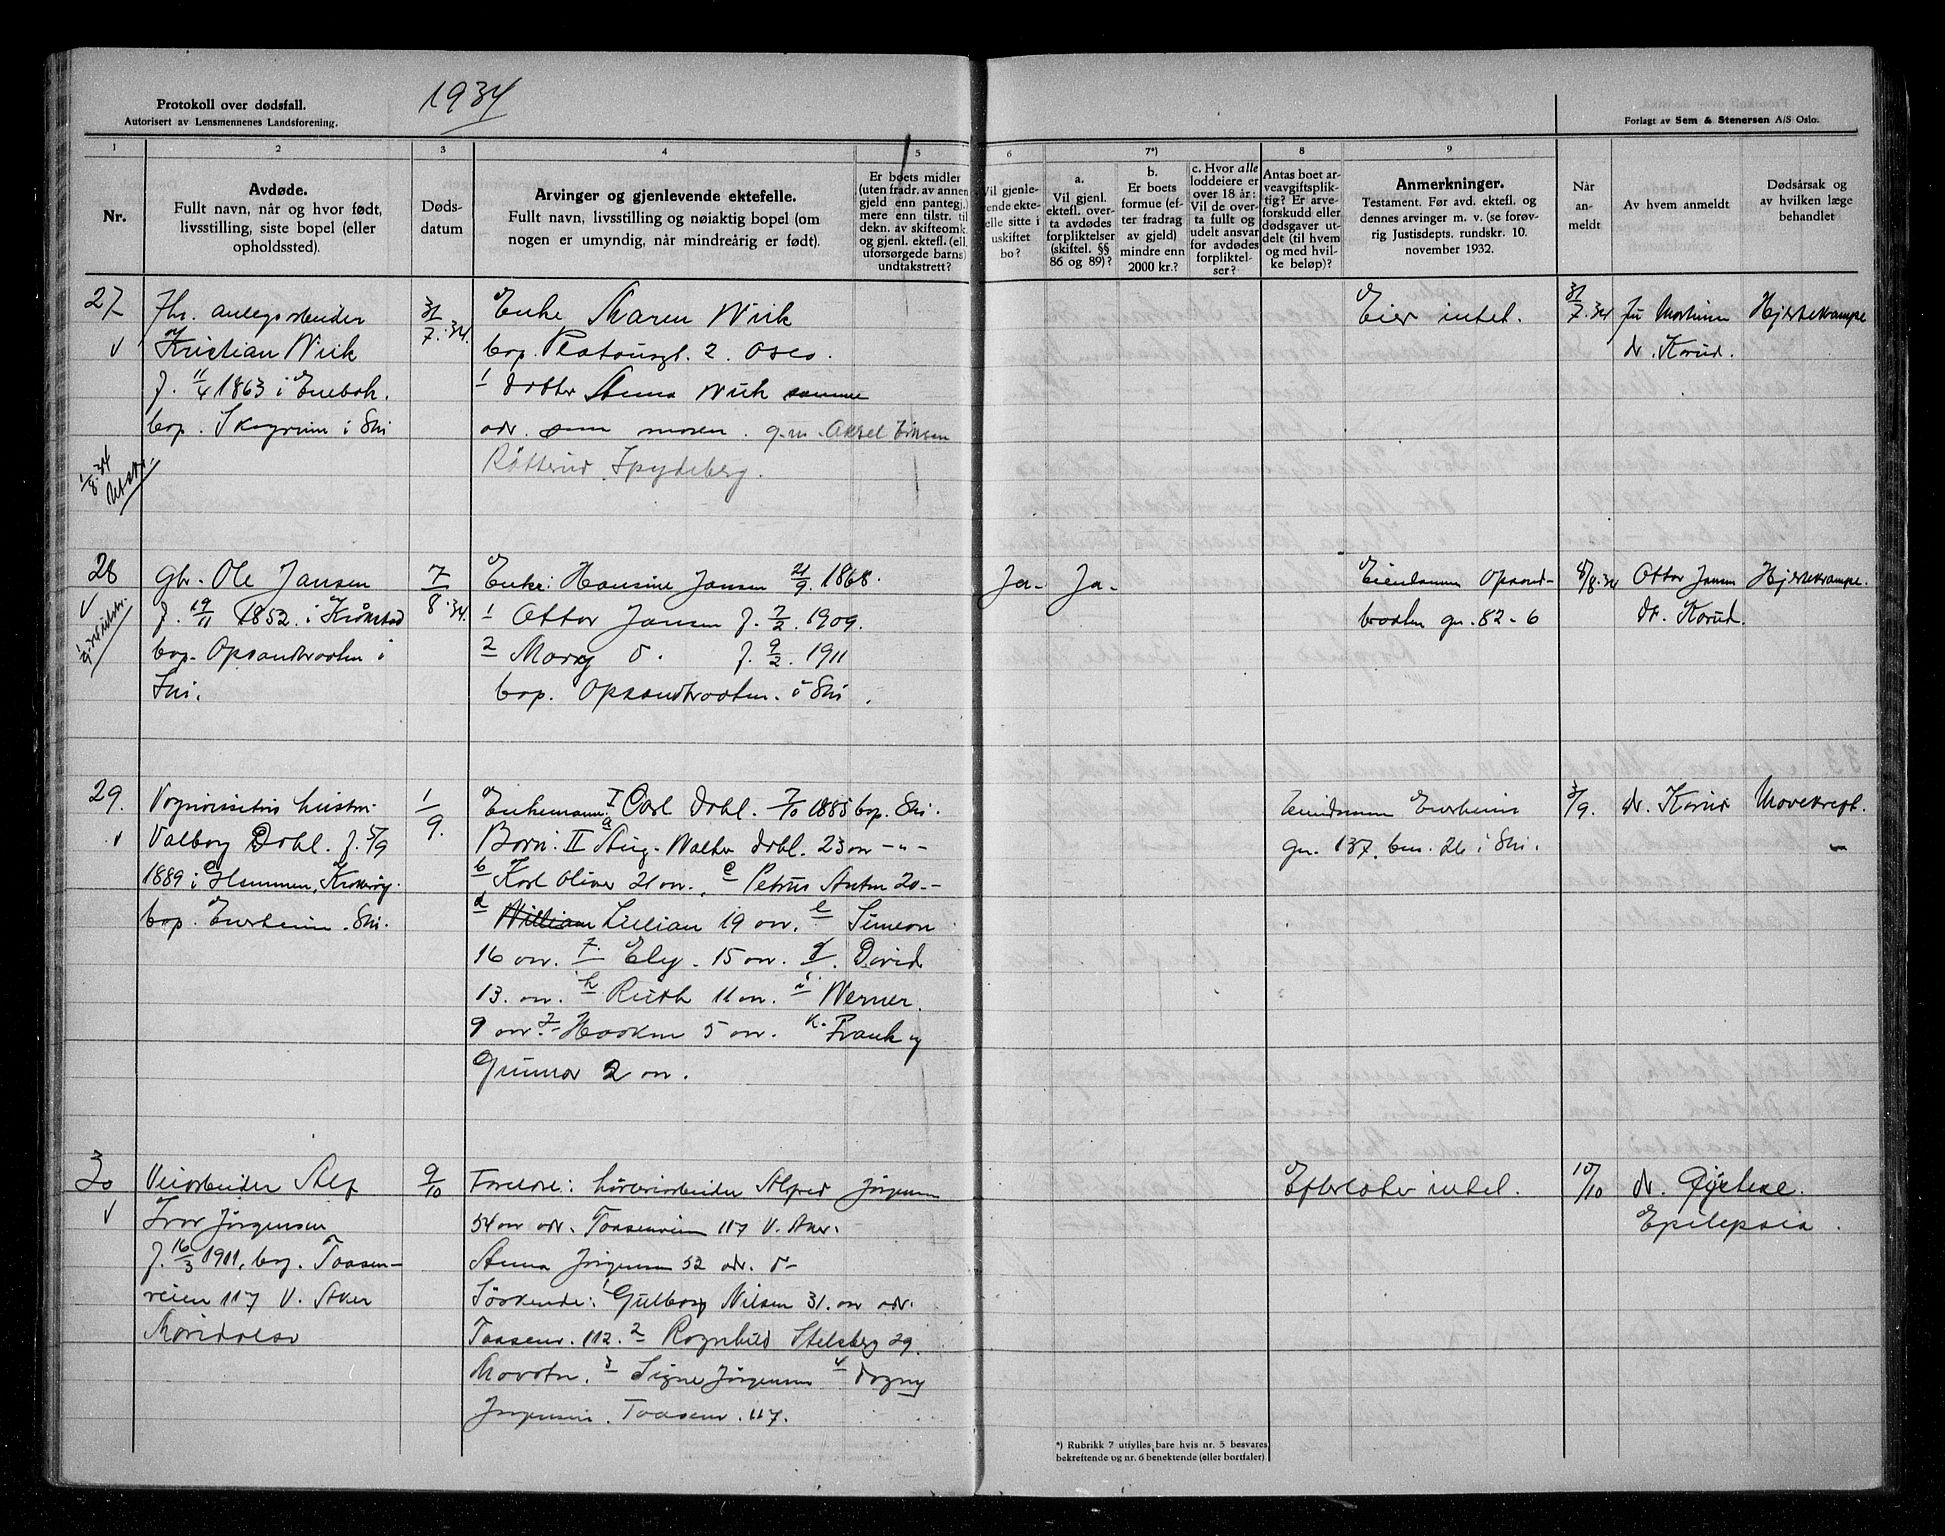 Protokoll over dødsfall.
Autorisert av Lensmennenes Landsforening.
1934
Forlagt av Sem & Stenersen A/S Oslo.
1
2
3
4
5
6
7*)
8
9
Nr.
Avdøde.
Fullt navn, når og hvor født,
livsstilling, siste bopel (eller
opholdssted).
Døds-
datum
Arvinger og gjenlevende ektefelle.
Fullt navn, livsstilling og nøiaktig bopel (om
nogen er umyndig, når mindreårig er født).
Er boets midler
(uten fradr. av annen
gjeld enn pantegj.)
mere enn tilstr. til
dekn. av skifteomk.
og gjenl. ektefl. (ell.
uforsørgede barns)
undtakstrett?
Vil gjenle-
vende ekte-
elle sitte i
uskiftet
bo?
a.
Vil gjenl.
ektefl. over-
ta avdødes
forpliktelser
(skiftel. §§
86 og 89)?
b.
Er boets
formue (ef-
ter fradrag
av gjeld)
mindre enn
2000 kr.?
c. Hvor alle
loddeiere er
over 18 år:
Vil de over-
ta fullt og
udelt ansvar
for avdødes
forpliktel-
ser?
Antas boet ar-
veavgiftsplik-
tig? Er arve-
forskudd eller
dødsgaver ut-
delt (til hvem
og med hvil-
ke beløp)?
Anmerkninger.
Testament. Før avd. ektefl. og
dennes arvinger m. v. (se forøv-
rig Justisdepts. rundskr. 10.
november 1932.
Når
an-
meldt
Av hvem anmeldt
Dødsårsak og
av hvilken læge
behandlet
27
v
Fhv. anlegsarbeider
Kristian Wiik
f. 11/4 1863 i Enebak.
bop. Skogrum i Ski
1/8.34
31/7.34.
Enke Maren Wiik
bop. Platousgt. 2. Oslo.
1 Datter Anna Wiik samme
adr. som moren. g.m. Aksel
Røtterud, Spydeberg.
Eier intet.
31/7.34
Mortum Hjertekrampe
dr. Korud.
28
v
Gbr. Ole Jansen
f. 19/11 1852. i Kråkstad
bop. Opsandbraaten i
Ski.
7/8.34.
Enke: Hansine Jansen 21/9. 1868.
1 Ottar Jansen f. 7/2. 1909.
2 Mary d. f. 9/2. 1911
bop. Opsandbraaten. i Ski.
Ja- Ja-
Eiendommen Opsand-
braaten gn. 82-6
8/8.34
Ottar Jansen Hjertekrampe.
dr. Korud.
29.
v
Vognvisitørs hustru
Valborg Dahl. f. 5/9
1889 i Hemmen, Kroksrøg.
bop. Enerheim. Ski.
1/9.
Enkemann: I Carl Dahl. 7/10 1885 bop. Ski.
Barn: II a Aug. Walter Dahl. 23 aar -"-
b Karl Oliver 21 aar., c Petrus Anton 20--
d William Lillian 19 aar. e Simeon
16 aar. f. Ely. 15 aar. g. David
13. aar. h Ruth 11 aar. i Werner.
9 aar. j- Haakon 5 aar. k. Frank og
Gunnar 2 aar.
Eiendommen Enerheim
gn. 137. bn. 26 i Ski.
3/9.
dr. Korud Mavekreft.
30
v
Veiarbeider Alf
Ivar Jørgensen
f. 16/3 1911, bop. Taasen-
veien 117 V. Aker
Maridalen
9/10
Foreldre: Alfred Jørgensen
54 aar adr. Taasenveien 117 V. Aker.
Anna Jørgensen 52 adr. d-
Søskende: 1 Gulborg Nilsen 31. aar adr.
Taasenv. 112. 2 Ragnhild Stelsberg 29.
3 Signe Jørgensen 4 Dagny
Jørgensen. Taasenv. 117.
Efterlater intet.
10/10
dr.
Epilepsia.
*) Rubrikk 7 utfylles bare hvis nr. 5 besvares
bekreftende og nr. 6 benektende (eller bortfaler)